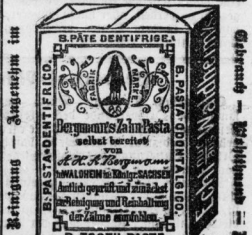 Reinigung — Angenehm im
B. PÂTE DENTIFRICE.
B. PASTA DENTIFRICO.
FABRIK MARKE
Bergmann's Zahn-Pasta
selbst bereitet
von
A. H. A. Bergmann
in WALDHEIM im Königr. SACHSEN
Amtlich geprüft und zunächst
zur Reinigung und Reinhaltung
der Zähne empfohlen.
B. PASTA ODONTALGICO.
Echt nur Waldheim